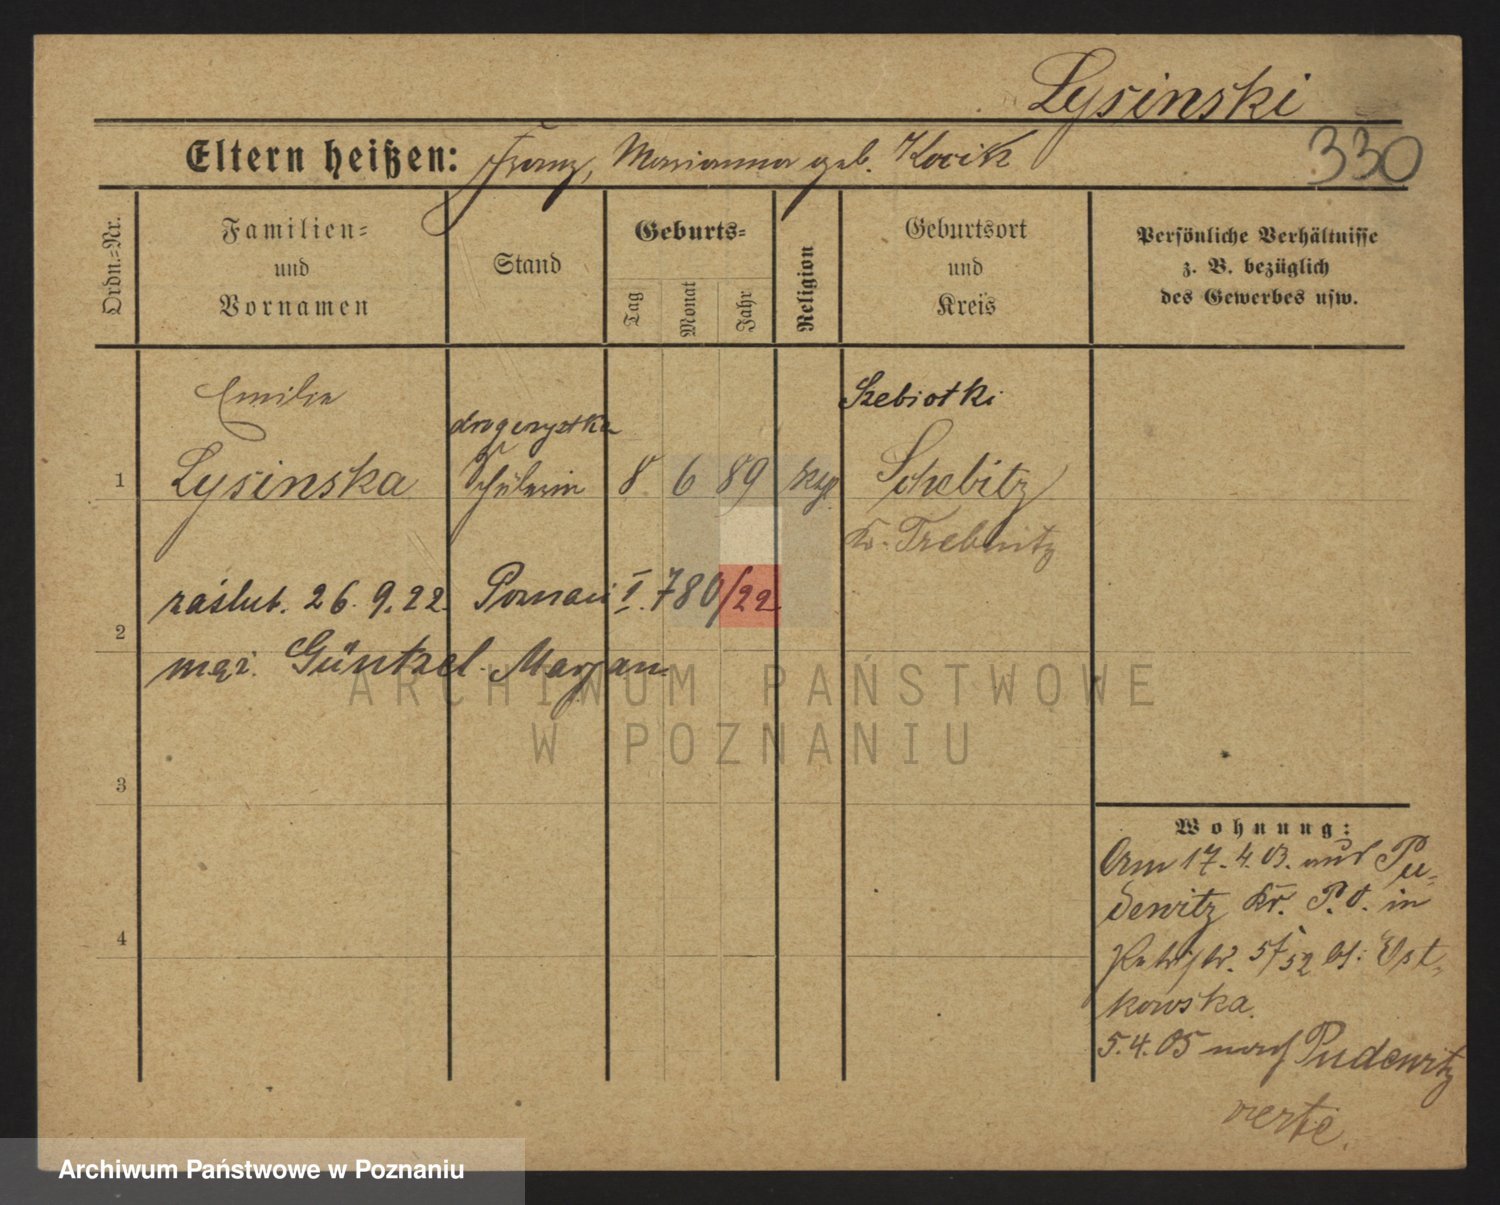 Lysinski
330
Eltern heißen: Franz, Marianna geb. Kocik
Ordn.-Nr.
Familien-
und
Vornamen
Stand
Geburts-
Tag
Monat
Jahr
Religion
Geburtsort
und
Kreis
Persönliche Verhältnisse
z. B. bezüglich
des Gewerbes usw.
Emilie
Szebiotki
drogerzystka
1 Lysinska Schülerin 8 6 89 Schebitz
Kr. Trebnitz
zaślub. 26.9.22. Poznań I. 780/22
2
mąż. Güntzel Marjan
ARCHIWUM PAŃSTWOWE
W POZNANIU
3
4
Wohnung:
Am 17.4.03. aus Pu-
dewitz Kr. P.O. in
57/52 bs:
kowska.
5.4.05 nach Pudewitz
verte.
Archiwum Państwowe w Poznaniu